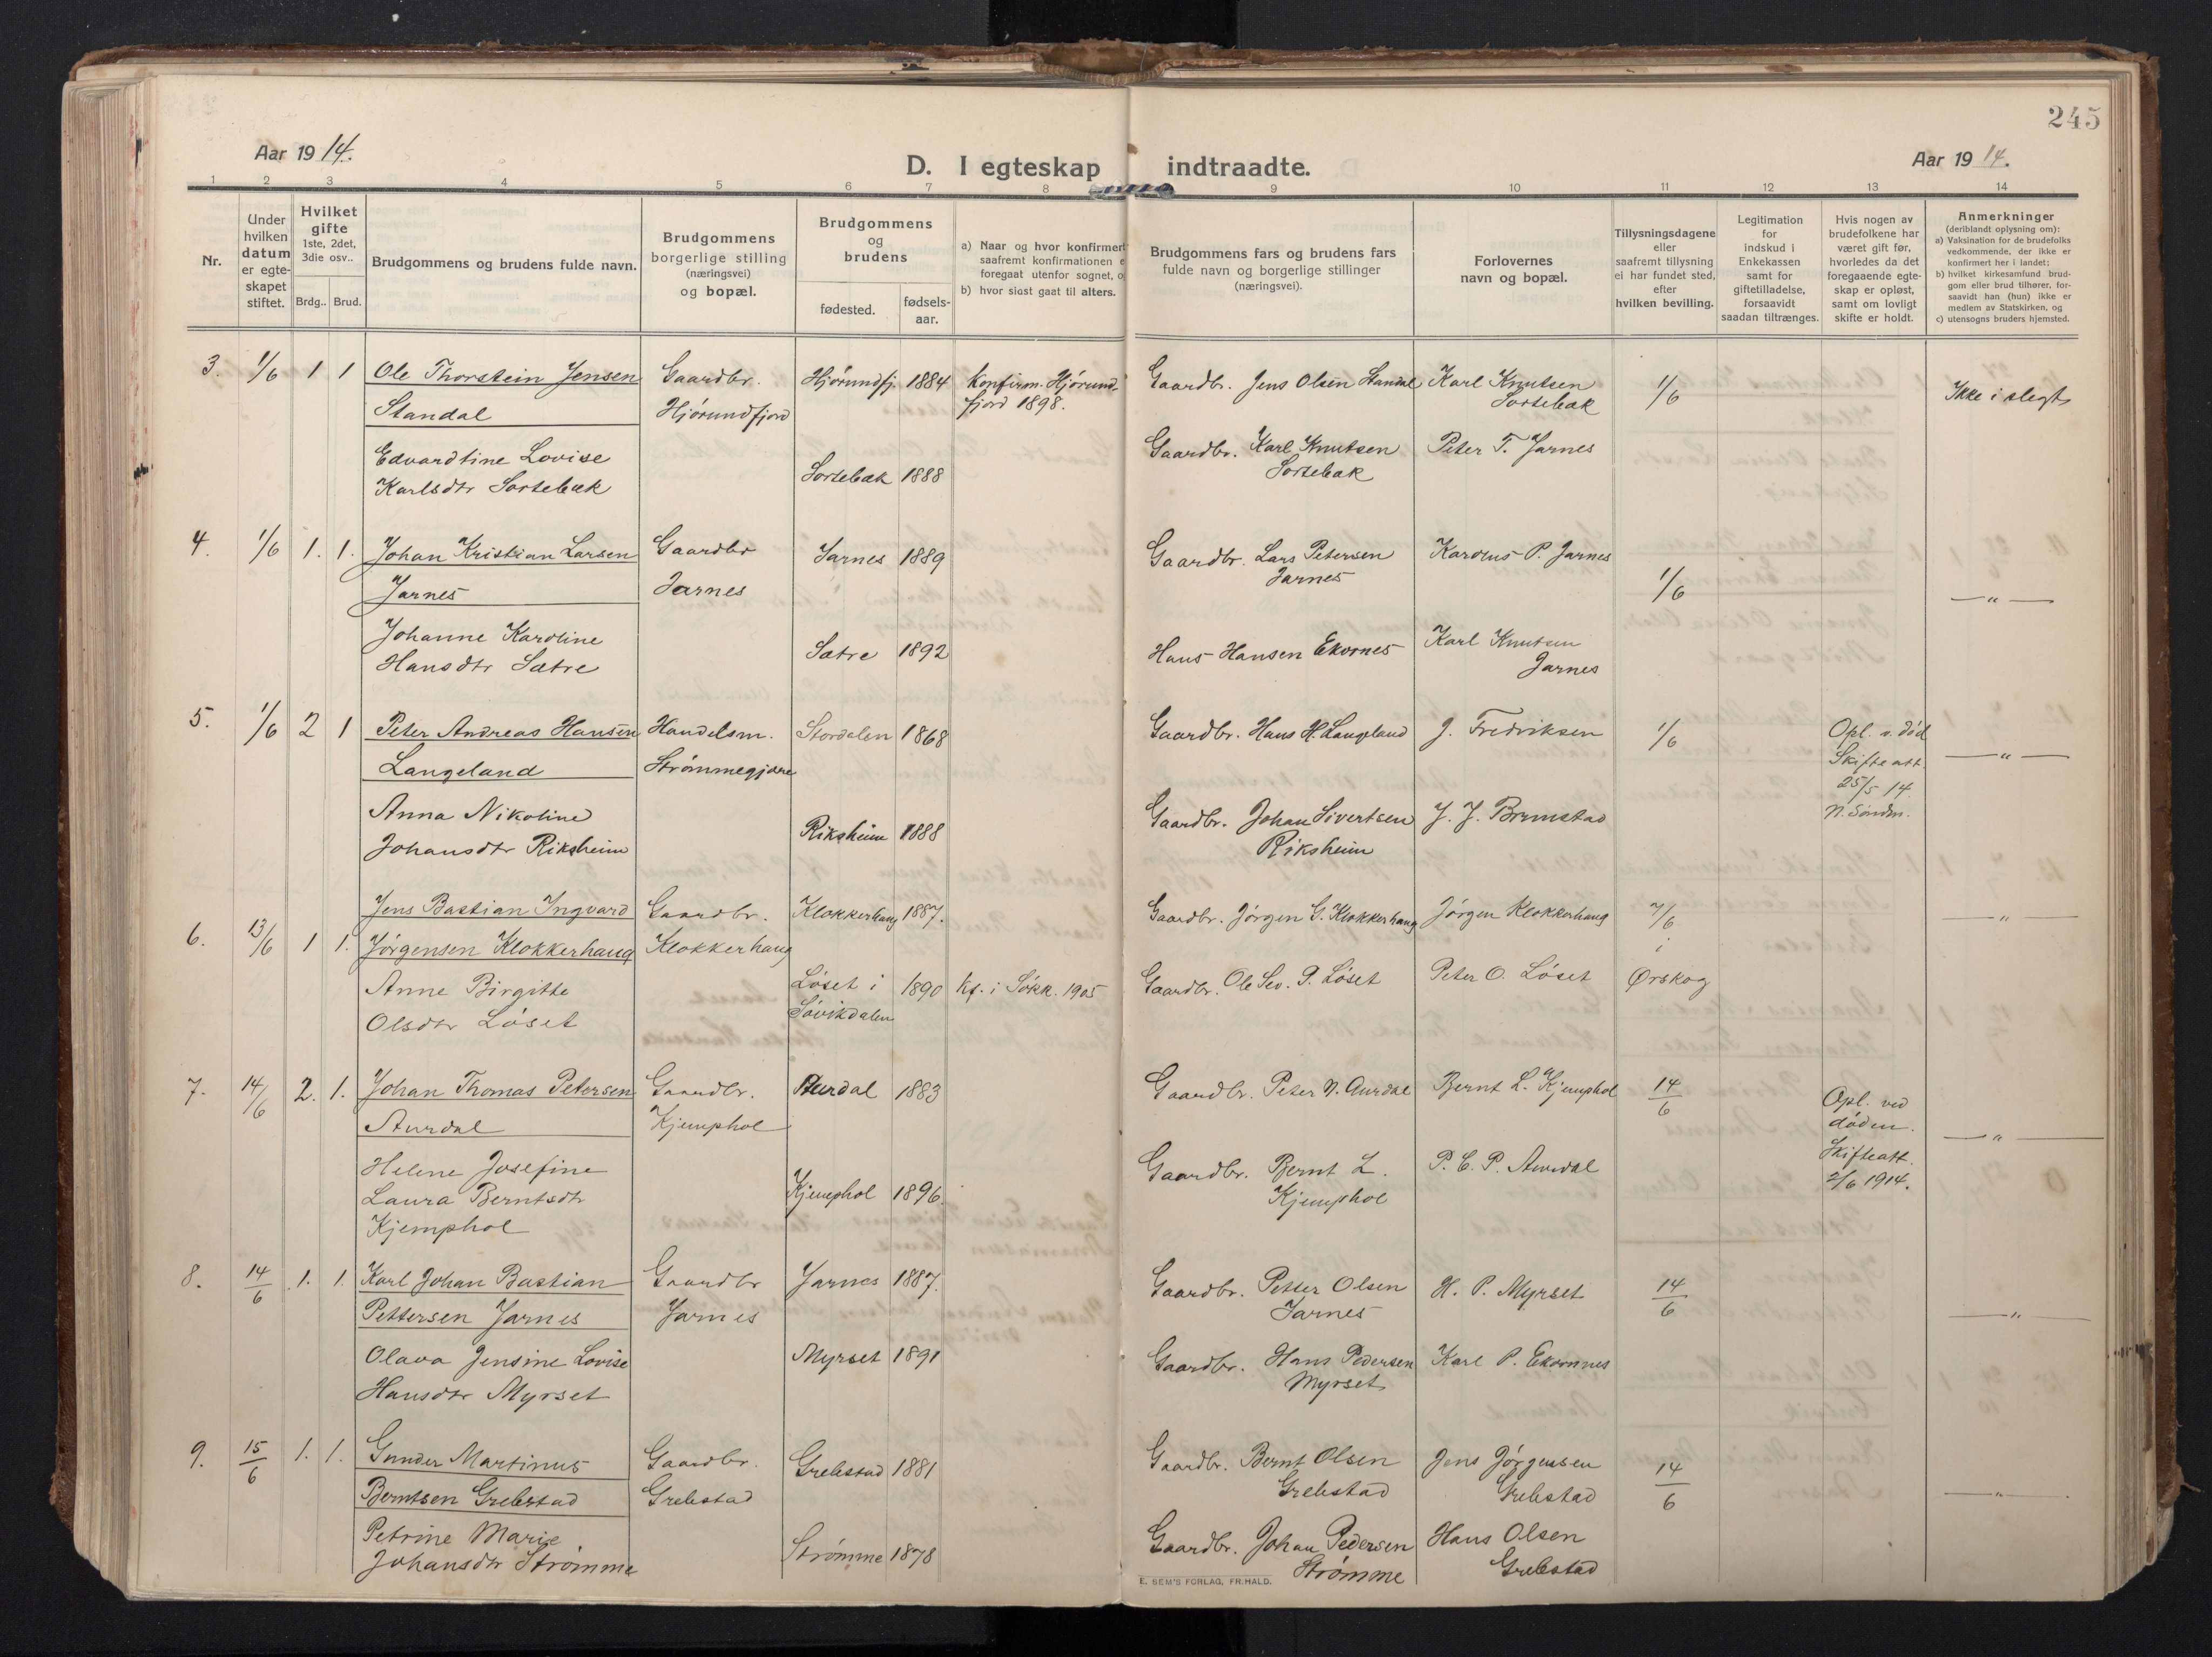 245
Aar 1914.
D. I egteskap indtraadte.
Aar 1914.
1 2 3 4 5 6 7 8 9 10 11 12 13 14
Nr.
Under hvilken datum er egte-skapet stiftet.
Hvilket gifte 1ste, 2det, 3die osv..
Brdg.. Brud.
Brudgommens og brudens fulde navn.
Brudgommens borgerlige stilling (næringsvei) og bopæl.
Brudgommens og brudens
fødested.
fødsels-aar.
a) Naar og hvor konfirmert
saafremt konfirmationen e
foregaat utenfor sognet, o
b) hvor sidst gaat til alters.
Brudgommens fars og brudens fars
fulde navn og borgerlige stillinger
(næringsvei).
Forlovernes
navn og bopæl.
Tillysningsdagene
eller
saafremt tillysning
ei har fundet sted,
efter
hvilken bevilling.
Legitimation
for
indskud i
Enkekassen
samt for
giftetilladelse,
forsaavidt
saadan tiltrænges.
Hvis nogen av
brudefolkene har
været gift før,
hvorledes da det
foregaaende egte-
skap er opløst,
samt om lovligt
skifte er holdt.
Anmerkninger
(deriblandt oplysning om):
a) Vaksination for de brudefolks
vedkommende, der ikke er
konfirmert her i landet;
b) hvilket kirkesamfund brud-
gom eller brud tilhører, for-
saavidt han (hun) ikke er
medlem av Statskirken, og
c) utensogns bruders hjemsted.
3. 1/6 1 1 Ole Thorstein Jensen Gaardbr. Hjørundfj. 1884 Konfirm. Hjørund Gaardbr. Jens Olsen Standal Karl Knutsen 1/6 Ikke i slegt
Standal Hjørundfjord fjord 1898. Sortebak
Edvardtine Lovise Gaardbr. Karl Knutsen Peter T. Jarnes
Karlsdtr Sortebak Sortebak 1888 Sortebak
4. 1/6 1. 1. Johan Kristian Larsen Gaardbr Jarnes 1889 Gaardbr. Lars Petersen Karolus P. Jarnes 1/6 — " —
Jarnes Jarnes Jarnes
Johanne Karoline Karl Knutsen
Hansdtr Sætre Sætre 1892 Hans Hansen Ekornes Jarnes
5. 1/6 2 1 Peter Andreas Hansen Handelsm. Stordalen 1868 Gaardbr. Hans H. Langeland J. Fredriksen 1/6 Opl. v. død
Langeland Strømmegjære Skifteatt. — " —
25/5 14.
Anna Nikoline Gaardbr. Johan Sivertsen N. Søndm.
Johansdtr Riksheim Riksheim 1888 Riksheim
6. 13/6 1 1. Jens Bastian Ingvard Gaardbr. Klokkerhaug 1887. Gaardbr. Jørgen G. Klokkerhaug Jørgen Klokkerhaug 7/6 — " —
Jørgensen Klokkerhaug Klokkerhaug i
Anne Birgitte Løset i 1890 Kf. i Søkk. 1905 Gaardbr. Ole Sev. P. Løset Peter O. Løset Ørskog
Olsdtr Løset Søvikdalen
7. 14/6 2. 1. Johan Thomas Petersen Gaardbr. Aurdal 1883 Gaardbr. Peter N. Aurdal Bernt L. Kjemphol 14/6 Opl. ved
Aurdal Kjemphol døden. — " —
Helene Josefine Gaardbr. Bernt L. P. C. P. Aurdal Skifteatt.
Laura Berntsdtr Kjemphol 1896. Kjemphol 2/6 1914.
Kjemphol
8. 14/6 1. 1. Karl Johan Bastian Gaardbr Jarnes 1887. Gaardbr. Petter Olsen H. P. Myrset 14/6
Pettersen Jarnes Jarnes Jarnes — " —
Olava Jensine Lovise Myrset 1891 Gaardbr. Hans Pedersen Karl P. Ekornnes
Hansdtr Myrset Myrset
9. 15/6 1. 1. Gunder Martinus Gaardbr. Grebstad 1881 Gaardbr. Bernt Olsen Jens Jørgensen 14/6
Berntsen Grebstad Grebstad Grebstad Grebstad — " —
Petrine Marie Gaardbr. Johan Pedersen Hans Olsen
Johansdtr Strømme Strømme 1878 Strømme Grebstad
E. SEM'S FORLAG, FR.HALD.